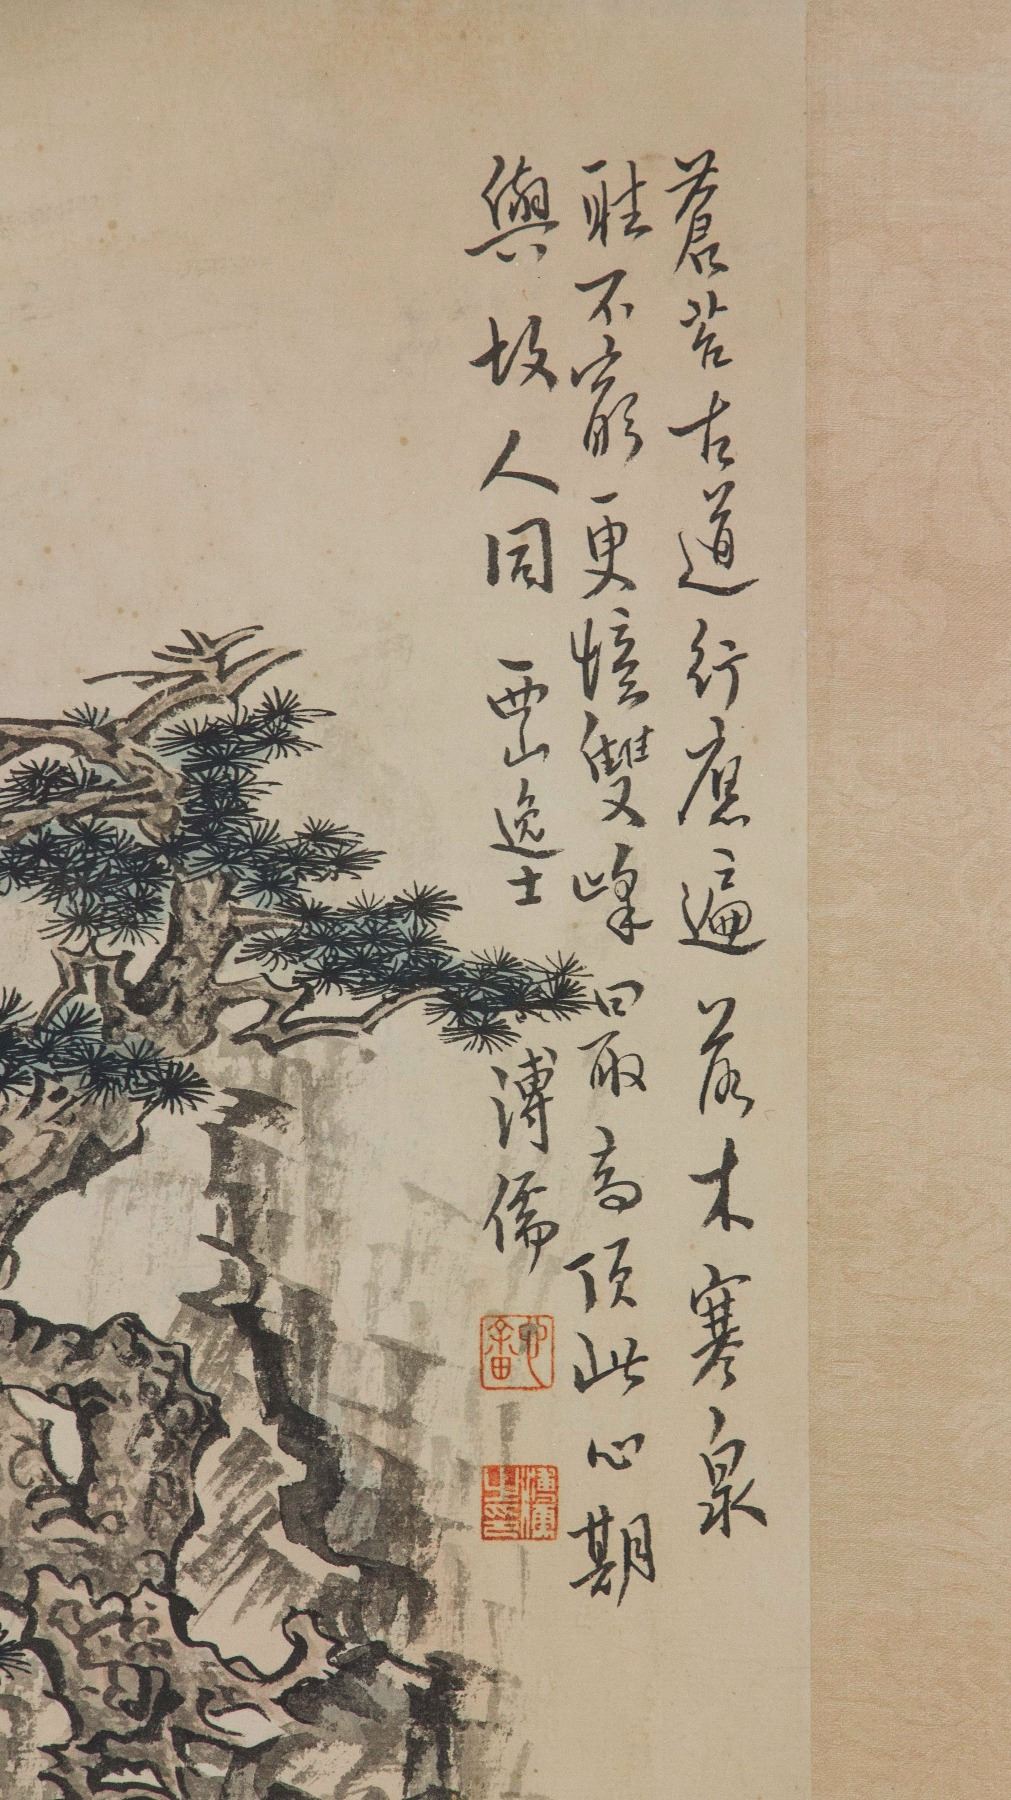 蒼苔古道行應遍落木寒泉
聽不窮更憶雙峰最高頂此心期
與故人同 西山逸士 溥儒
溥儒之印